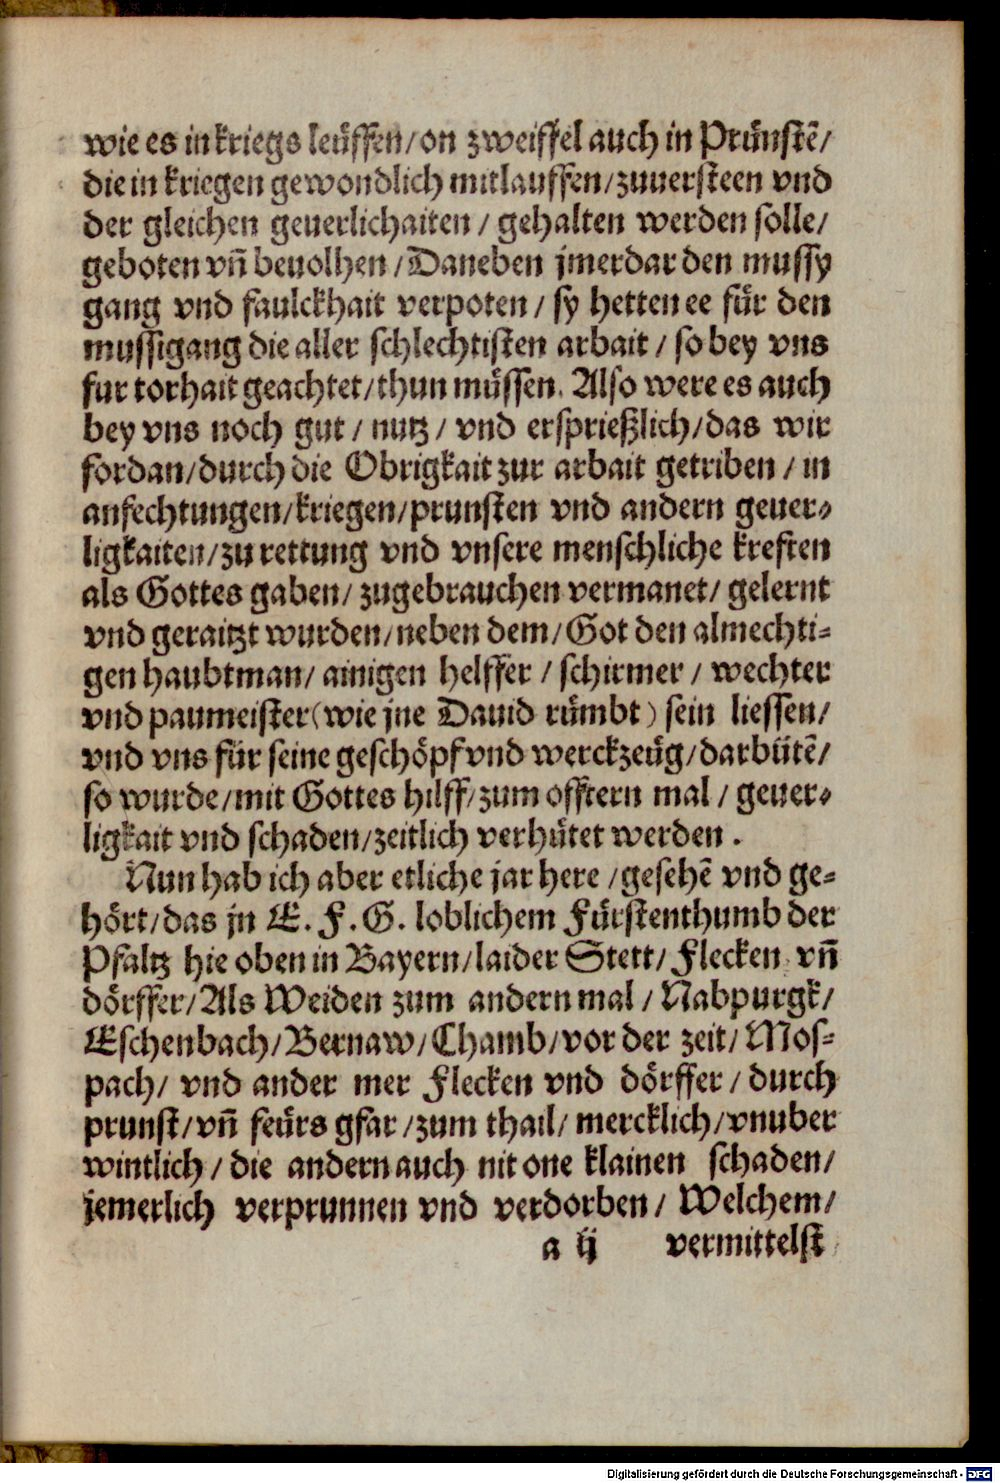 wie es in kriegs leüffen/on zweiffel auch in Prünstē/
die in kriegen gewondlich mitlauffen/zuuersteen vnd
der gleichen geuerlichaiten/gehalten werden solle/
geboten vn̄ beuolhen/Daneben jmerdar den mussy
gang vnd faulckhait verpoten/sy hetten ee für den
mussigang die aller schlechtisten arbait/so bey vns
fur torhait geachtet/thun müssen. Also were es auch
bey vns noch gut/nutz/vnd ersprießlich/das wir
fordan/durch die Obrigkait zur arbait getriben/in
anfechtungen/kriegen/prunsten vnd andern geuer⸗
ligkaiten/zu rettung vnd vnsere menschliche kreften
als Gottes gaben/zugebrauchen vermanet/gelernt
vnd geraitzt wurden/neben dem/Got den almechti⸗
gen haubtman/ainigen helffer/schirmer/wechter
vnd paumeister(wie jne Dauid rümbt) sein liessen/
vnd vns für seine geschöpf vnd werckzeüg/darbütē/
so wurde/mit Gottes hilff/zum offtern mal/geuer⸗
ligkait vnd schaden/zeitlich verhütet werden.
Nun hab ich aber etliche jar here/gesehē vnd ge⸗
hört/das jn E. F. G. loblichem Fürstenthumb der
Pfaltz hie oben in Bayern/laider Stett/Flecken vn̄
dörffer/Als Weiden zum andern mal/Nabpurgk/
Eschenbach/Bernaw/Chamb/vor der zeit/Mos⸗
pach/vnd ander mer Flecken vnd dörffer/durch
prunst/vn̄ feürs gfar/zum thail/mercklich/vnuber
wintlich/die andern auch nit one klainen schaden/
jemerlich verprunnen vnd verdorben/Welchem/
a ij vermittelst
Digitalisierung gefördert durch die Deutsche Forschungsgemeinschaft - DFG